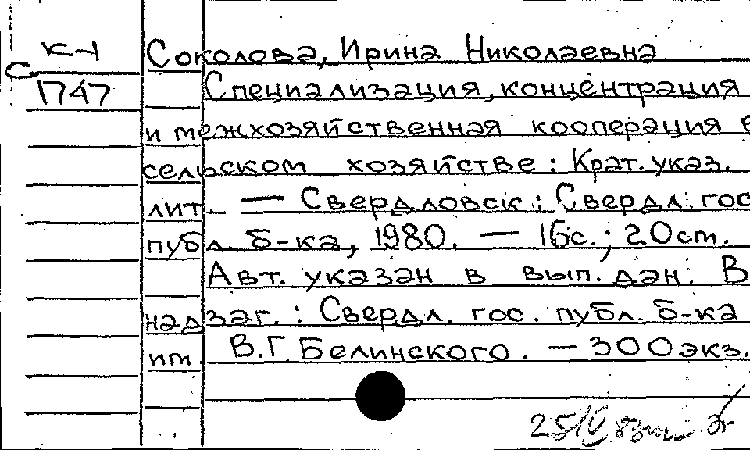 К-1
С
1747
Соколова, Ирина Николаевна
Специализация, концентрация
и межхозяйственная кооперация в
сельском хозяйстве: Крат. указ.
лит. — Свердловск: Свердл. гос.
публ. б-ка, 1980. — 16с.; 20 ст.
Авт. указан в вып. дан. В
надзаг.: Свердл. гос. публ. б-ка
им. В.Г. Белинского. — 300 экз.